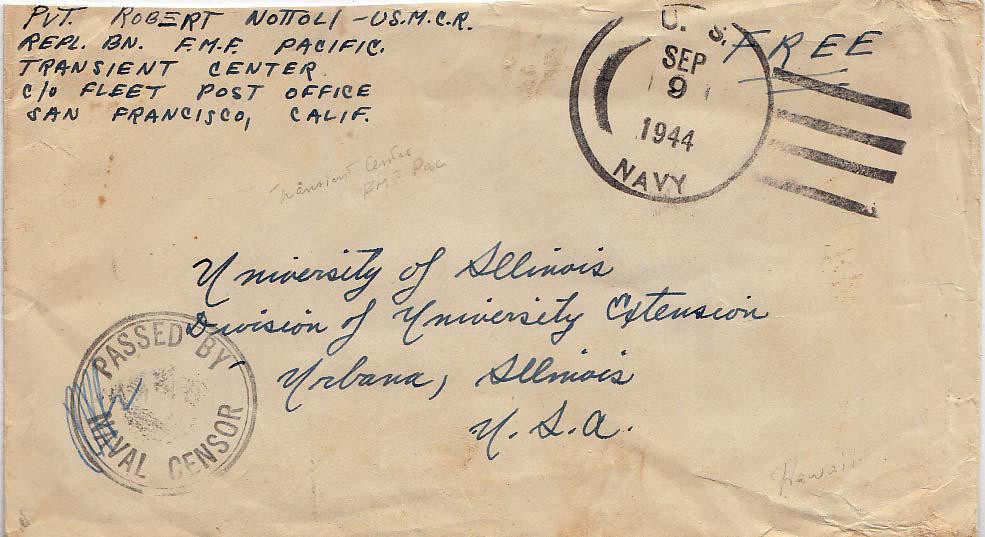 Pvt. ROBERT NOTTOLI - U.S.M.C.R.
REPL. BN. F.M.F. PACIFIC.
TRANSIENT CENTER
C/O FLEET POST OFFICE
SAN FRANCISCO, CALIF.
U. S.
SEP
9
1944
NAVY
FREE
Transient Center
FMF Pac
University of Illinois
Division of University Extension
Urbana, Illinois
U.S.A.
PASSED BY
NAVAL CENSOR
Hawaii